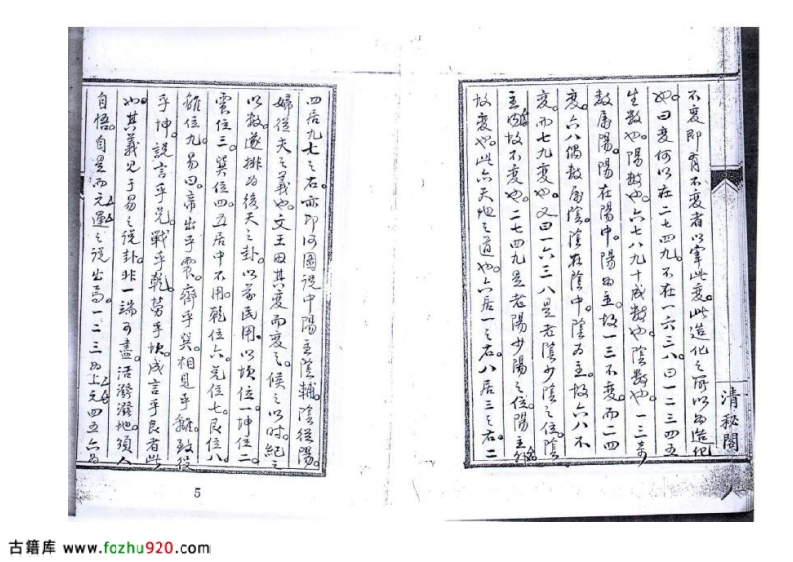 不变即有不变者以宰此变此造化之所以为造化
也曰变何以在二七四九不在一六三八曰一二三四五
生数也陽数也六七八九十成数也陰数也一三奇
数属陽陽在陽中陽为主故一三不变而二四
变六八偶数属陰陰在陰中陰为主故六八不
变而七九变也又曰一六三八是老陰少陰之位陰
主内故不变也二七四九是老陽少陽之位陽主外
故变也此六天地之道也六居一之右八居三之右二
四居九七之右亦即河圖说中陽主陰輔陰從陽
婦從夫之義也文王因其变而变之候之以时紀之
以数遂排为後天之卦以前民用以坎位一坤位二
震位三巽位四五居中不用乾位六兑位七艮位八
離位九易曰帝出乎震齊乎巽相見乎離致役
乎坤説言乎兑戰乎乾劳乎坎成言乎艮者此
也其義见于易之说卦非一端可盡活潑潑地須人
自悟自是而元運之说出焉一二三为上元四五六为
清秘閣
5
古籍库 www.fozhu920.com